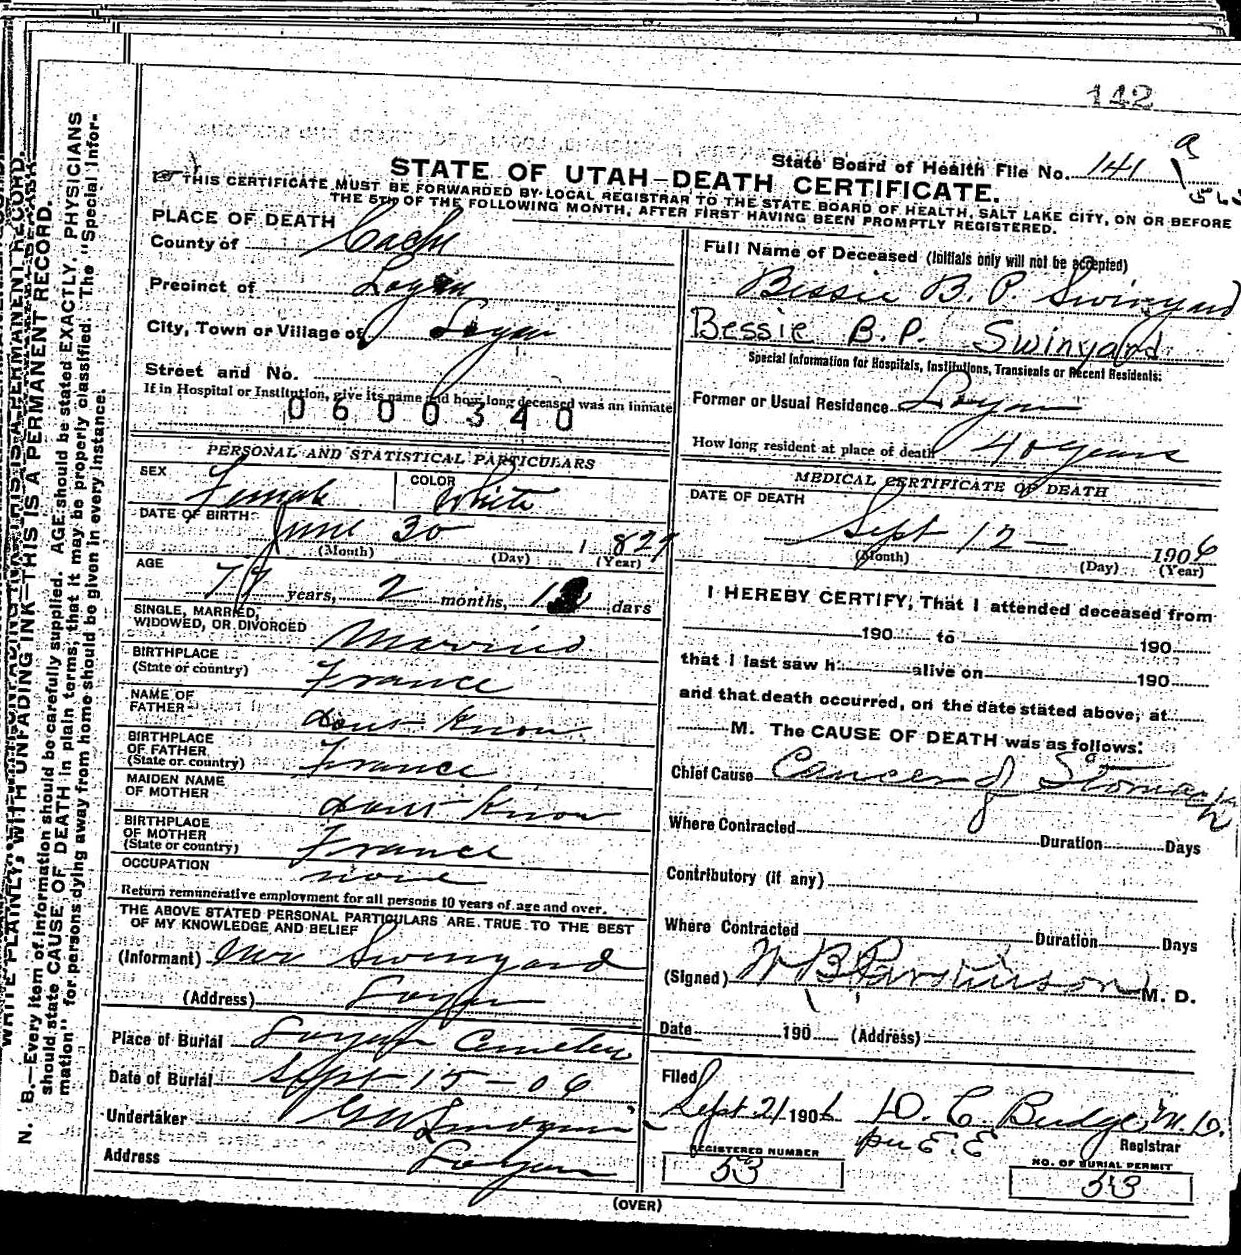 142
State Board of Health File No. 141
STATE OF UTAH—DEATH CERTIFICATE.
THIS CERTIFICATE MUST BE FORWARDED BY LOCAL REGISTRAR TO THE STATE BOARD OF HEALTH, SALT LAKE CITY, ON OR BEFORE
THE 5TH OF THE FOLLOWING MONTH, AFTER FIRST HAVING BEEN PROMPTLY REGISTERED.
PLACE OF DEATH
County of Cache
Precinct of Logan
City, Town or Village of Logan
Street and No.
If in Hospital or Institution, give its name and how long deceased was an inmate
0600340
PERSONAL AND STATISTICAL PARTICULARS
SEX Female COLOR White
DATE OF BIRTH June 30 1827
(Month) (Day) (Year)
AGE 79 years, 2 months, days
SINGLE, MARRIED,
WIDOWED, OR DIVORCED Married
BIRTHPLACE
(State or country) France
NAME OF
FATHER dont Know
BIRTHPLACE
OF FATHER
(State or country) France
MAIDEN NAME
OF MOTHER dont Know
BIRTHPLACE
OF MOTHER
(State or country) France
OCCUPATION none
Return remunerative employment for all persons 10 years of age and over.
THE ABOVE STATED PERSONAL PARTICULARS ARE TRUE TO THE BEST
OF MY KNOWLEDGE AND BELIEF
(Informant) Swinyard
(Address) Logan
Place of Burial Logan Cemetery
Date of Burial Sept 15-06
Undertaker
Address Logan
Full Name of Deceased (Initials only will not be accepted)
Bessie B. P. Swinyard
Bessie B.P. Swinyard
Special Information for Hospitals, Institutions, Transients or Recent Residents:
Former or Usual Residence Logan
How long resident at place of death 40 years
MEDICAL CERTIFICATE OF DEATH
DATE OF DEATH
Sept 12— 1906
(Month) (Day) (Year)
I HEREBY CERTIFY, That I attended deceased from
190 to 190
that I last saw h alive on 190
and that death occurred, on the date stated above, at
M. The CAUSE OF DEATH was as follows:
Chief Cause Cancer of Stomach
Where Contracted Duration Days
Contributory (if any)
Where Contracted Duration Days
(Signed) W B Parkinson M. D.
Date 190 (Address)
Filed
Sept 21 1906 D. C. Budge M.D.
per E. E Registrar
REGISTERED NUMBER
53
NO. OF BURIAL PERMIT
53
(OVER)
WRITE PLAINLY, WITH UNFADING INK—THIS IS A PERMANENT RECORD.
N. B.—Every item of information should be carefully supplied. AGE should be stated EXACTLY. PHYSICIANS
should state CAUSE OF DEATH in plain terms, that it may be properly classified. The "Special Infor-
mation" for persons dying away from home should be given in every instance.